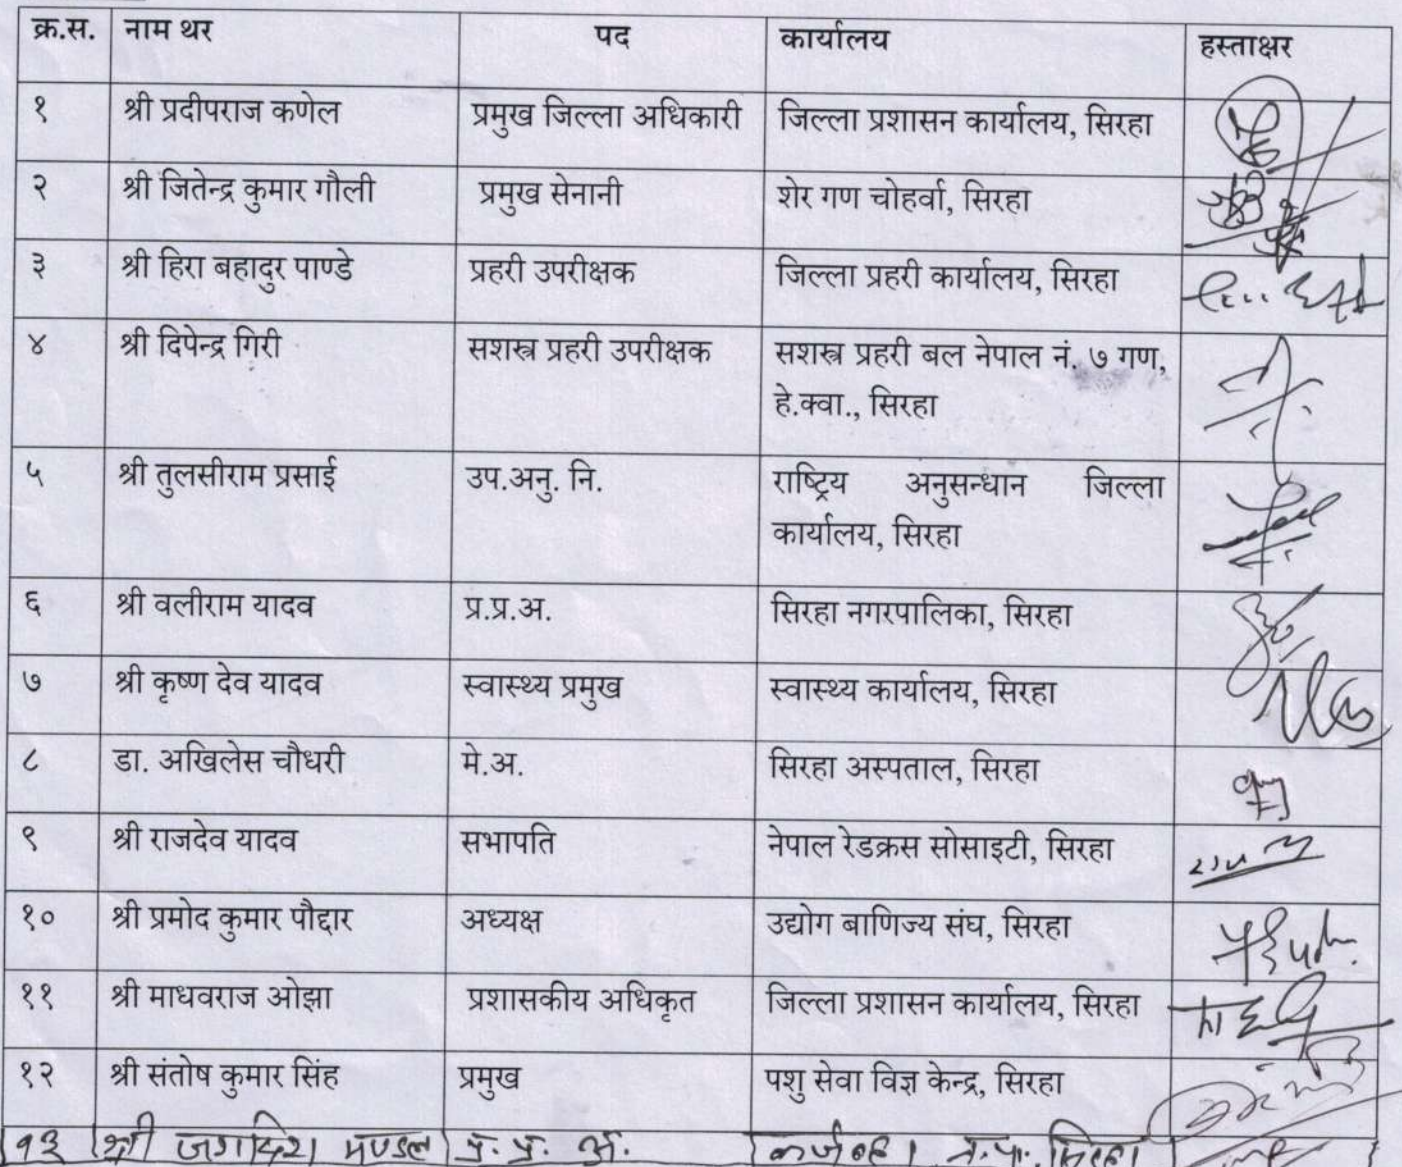 क्र.स. नाम थर पद कार्यालय हस्ताक्षर
१ श्री प्रदीपराज कणेल प्रमुख जिल्ला अधिकारी जिल्ला प्रशासन कार्यालय, सिरहा
२ श्री जितेन्द्र कुमार गौली प्रमुख सेनानी शेर गण चोहर्वा, सिरहा
३ श्री हिरा बहादुर पाण्डे प्रहरी उपरीक्षक जिल्ला प्रहरी कार्यालय, सिरहा
४ श्री दिपेन्द्र गिरी सशस्त्र प्रहरी उपरीक्षक सशस्त्र प्रहरी बल नेपाल नं. ७ गण,
हे.क्वा., सिरहा
५ श्री तुलसीराम प्रसाई उप.अनु. नि. राष्ट्रिय अनुसन्धान जिल्ला
कार्यालय, सिरहा
६ श्री वलीराम यादव प्र.प्र.अ. सिरहा नगरपालिका, सिरहा
७ श्री कृष्ण देव यादव स्वास्थ्य प्रमुख स्वास्थ्य कार्यालय, सिरहा
८ डा. अखिलेस चौधरी मे.अ. सिरहा अस्पताल, सिरहा
९ श्री राजदेव यादव सभापति नेपाल रेडक्रस सोसाइटी, सिरहा
१० श्री प्रमोद कुमार पौद्दार अध्यक्ष उद्योग बाणिज्य संघ, सिरहा
११ श्री माधवराज ओझा प्रशासकीय अधिकृत जिल्ला प्रशासन कार्यालय, सिरहा
१२ श्री संतोष कुमार सिंह प्रमुख पशु सेवा विज्ञ केन्द्र, सिरहा
१३ श्री जगदिश मण्डल प्र. प्र. अ. कर्जन्हा न.पा. सिरहा